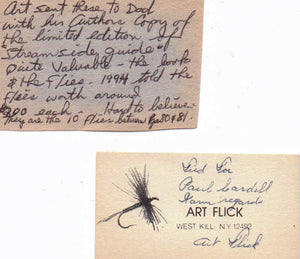 Art sent these to Dad
with his Authors Copy of
the limited edition of
"Streamside guide"
Quite Valuable - the book
& the Flies. 1994 told the
Flies worth around
200 each Hard to believe.
They are the 10 Flies between Pg 80 & 81.
Tied For
Paul
Warm regards
ART FLICK
WEST KILL, N.Y. 12492
Art Flick